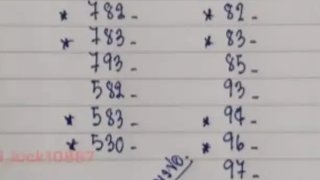 * 782-
* 783-
793-
582-
* 583-
* 530-
* 82-
* 83-
85-
93-
* 94-
* 96-
97-